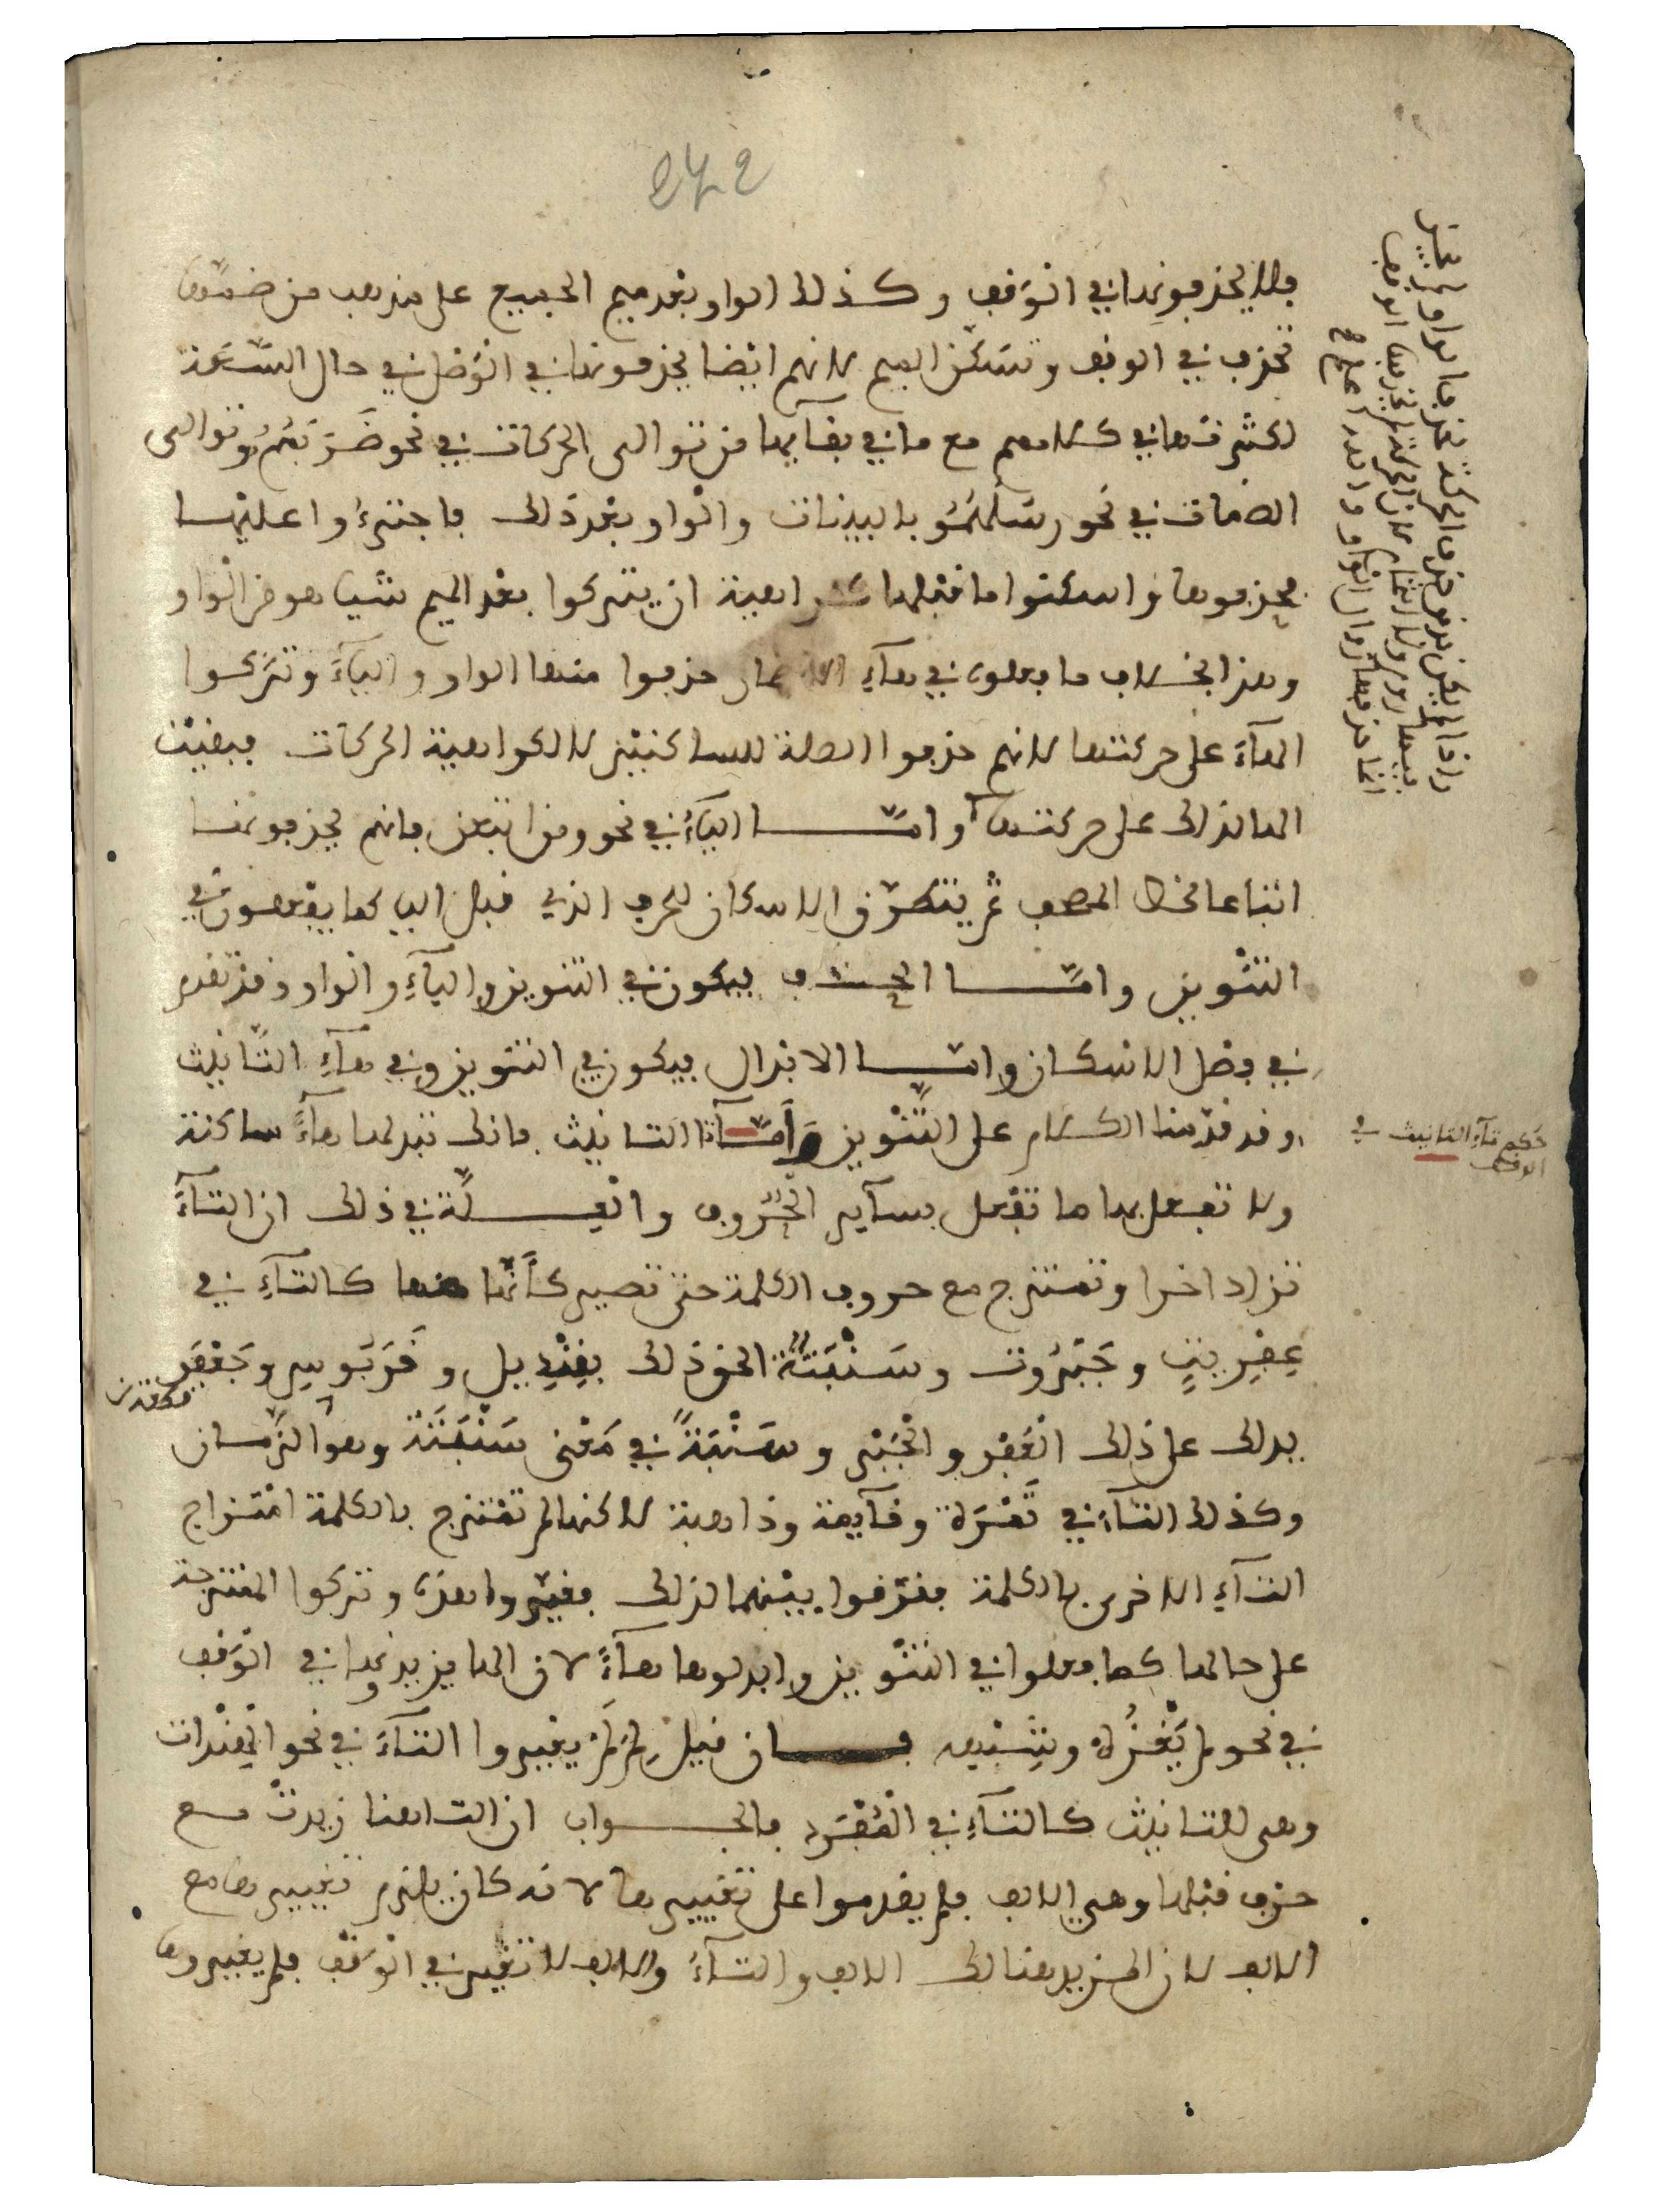 242
فلا يحذفونها في الوَقف وكذلك الواو بعد ميم الجميع على مذهب من ضمّها
تحذف في الوقف وتسكّن الميم لانهم ايضا يحذفونها في الوَصل في حال السَّعة
لكثرتها في كلامهم مع ما في بقآئها من توالى الحركات في نحو ضَرَبَهُمُو وتوالى
الضمات في نحو رسلهُمُو بالبينات والواو بعد ذلك فاجترءُوا عليها
فحذفوها واسكنوا ما قبلها كراهية ان يتركوا بعد الميم شيا هو من الواو
وهذا بخلاف ما فعلوه في هآءِ الاضمار حذفوا منها الواو واليآءَ وتركوا
الهآءَ على حركتها لانهم حذفوا الصلة للساكنين لا لكراهية الحركات فبقيت
الها لذلك على حركتها وامّا اليآءُ في نحو ومن اتبعن فانهم يحذفونها
اتباعا لخط المصحف ثم يتطرّق الاسكان للحرف الذي قبل اليا كما يفعلون في
التنْوين وامّا الحذف فيكون في التنوين واليآءِ والواو وقد تقدم
في فصل الاسكان وامّا الابدال فيكون في التنوين وفي هآءِ التّانيث
وقد قدّمنا الكلام على التَّنْوين وَأمّا تآءُ التانيث فانك تبدلها هآءً ساكنة
ولا تفعل بها ما تفعل بسآير الحُرُوف والعِلَّة في ذلك ان التآءَ
تزاد اخرا وتمتزج مع حروف الكلمة حتى تصير كأَنَّها منها كالتآءِ في
عِفْرِيتٍ وجَبَرُوت وسَنْبَتَة الحق ذلك بقِنْدِيل و قَرَبُوسٍ وجَعْفَر
يدلك على ذلك العَفْر والجَبْر وسَنْبَةً في مَعْنى سَنْبَتَة وهو الزَّمان
وكذلك التآءُ في تَمْرَة وقآيمة وذاهبة لاكنها لم تمْتزج بالكلمة امْتزاج
التآءِ الاخرى بالكلمة ففرّقوا بيْنهما لذلك فغيّروا هذه وتركوا الممتزجة
على حالها كما فعلوا في التنْوين وابدلوها هآءً لان الها يزيدونها في الوَقف
في نحو لم يَغْزُهْ وشِبهه فان قيل لِمَ لَمْ يغيروا التآءَ في نحو الهِنْدات
وهى للتانيث كالتآءِ في المُفْرَد فالجواب ان التا هنا زيدتْ مع
حرف قبلها وهي الالف فلم يقدموا على تغييرها لانه كان يلزم تغييرها مع
الالف لان المزيد هنا لك الالف والتآءُ والالف لا تغير في الوَقف فلم يغيروها
حُكم تآءِ التانيث في
الوقف